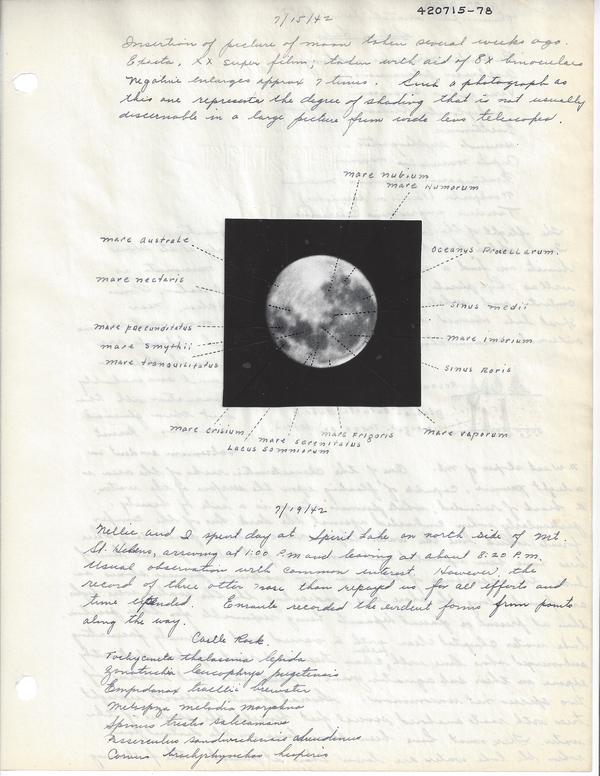 7/15/42
420715-78
Insertion of picture of moon taken several weeks ago.
Exacta, XX super film; taken with aid of 8x binoculars
Negative enlarges approx 7 times. Such a photograph as
this one represents the degree of shading that is not usually
discernable in a large picture from wide lens telescopes.
mare nubium
mare Humorum
mare australe
Oceanus Procellarum.
mare nectaris
Sinus medii
mare foecunditatus
mare smythii
mare Imbrium
mare tranquisitatus
Sinus Roris
mare crisium
mare Frigoris
mare vaporum
mare serenitatus
Lacus Somniorum
7/19/42
Nellie and I spent day at Spirit Lake on north side of Mt.
St. Helens, arriving at 1:00 P.M and leaving at about 8:20 P.M.
Usual observation with common interest. However, the
record of three otter more than repayed us for all efforts and
time extended. Enroute recorded the evident forms from points
along the way.
Castle Rock.
Tachycineta thalassina lepida
Zonotrichia leucophrys pugetensis
Empidonax traillii brewster
Melospiza melodia morphna
Spinus tristis salicamans
Passerculus sandwichensis
Corvus brachyrhynchos hesperis